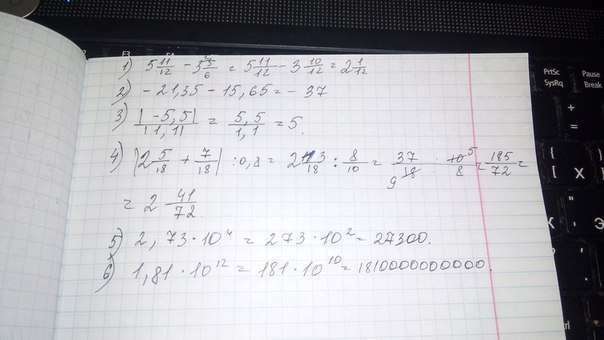 1) 5 11/12 - 3 5/6 = 5 11/12 - 3 10/12 = 2 1/12
2) - 21,35 - 15,65 = - 37
3) |-5,5| / |1,1| = 5,5 / 1,1 = 5.
4) |2 5/18 + 7/18| : 0,8 = 2 13/18 : 8/10 = 37/18 · 10/8 = 185/72 =
9 5
= 2 41/72
5) 2,73 · 10⁴ = 273 · 10² = 27300.
6) 1,81 · 10¹² = 181 · 10¹⁰ = 1810000000000.
PrtSc
SysRq
Pause
Break
+
=
{
[ X
}